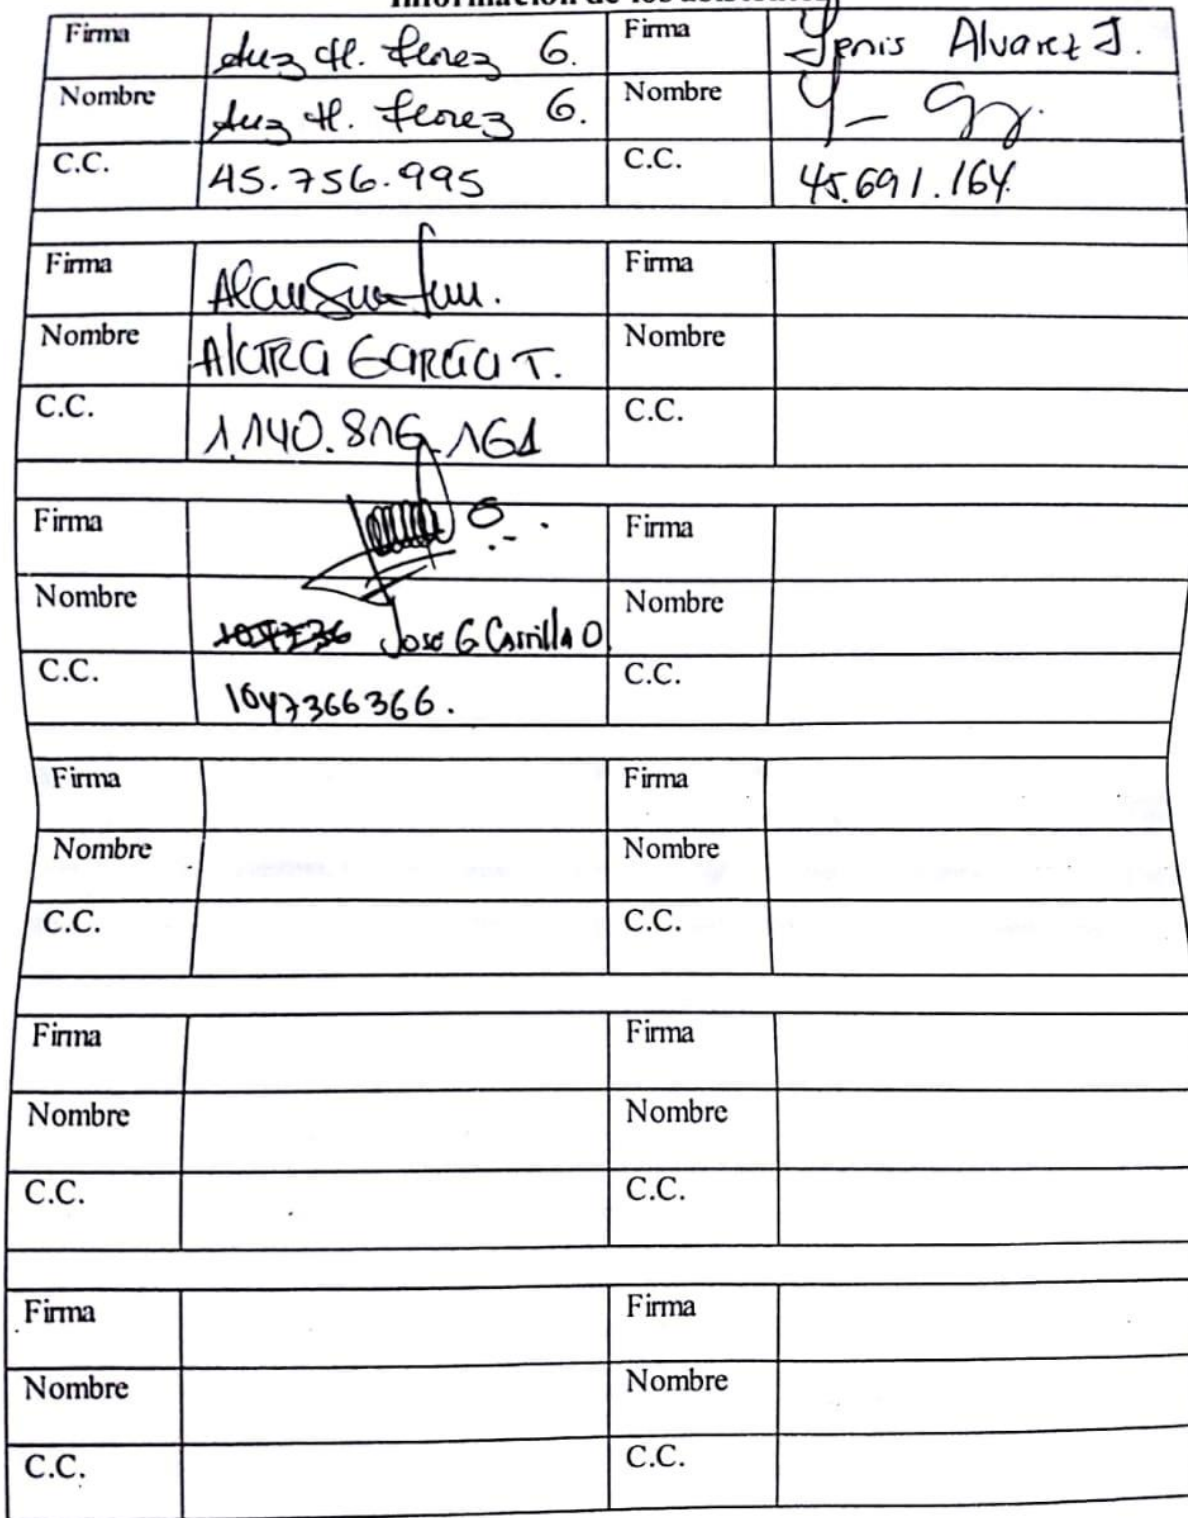 Información de los asistentes
Firma Luz H. Florez G. Firma Yenis Alvarez J.
Nombre Luz H. Florez G. Nombre
C.C. 45.756.995 C.C. 45.691.164
Firma Firma
Nombre Alcira Garcia T. Nombre
C.C. 1.140.816.161 C.C.
Firma Firma
Nombre Jose G Carrillo O Nombre
C.C. 1047366366. C.C.
Firma Firma
Nombre Nombre
C.C. C.C.
Firma Firma
Nombre Nombre
C.C. C.C.
Firma Firma
Nombre Nombre
C.C. C.C.